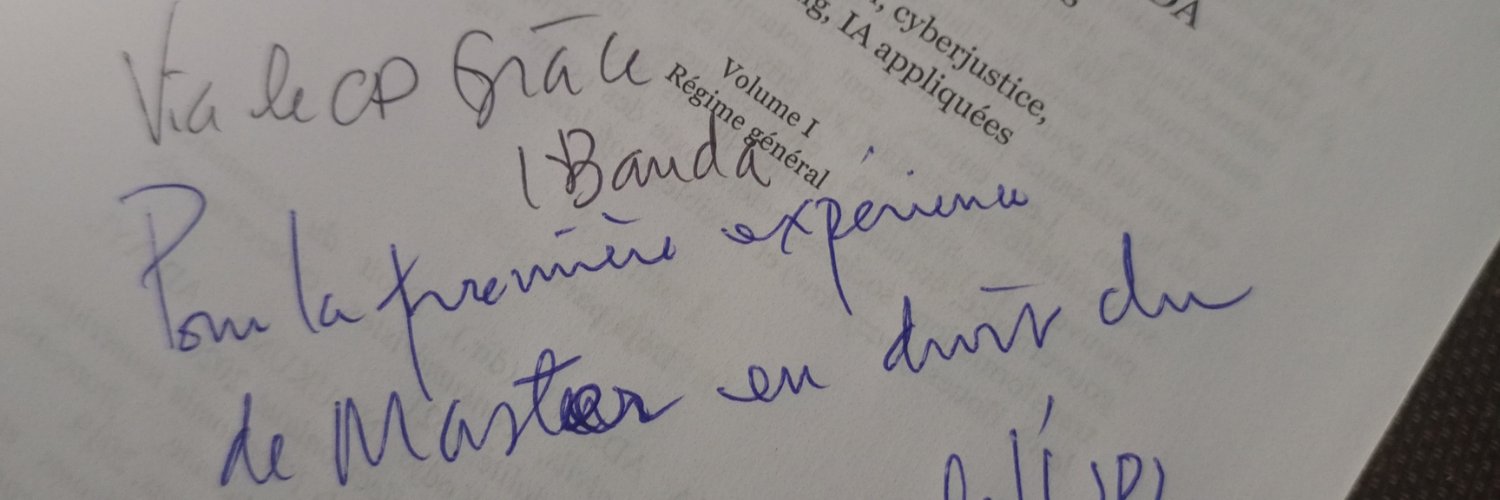 DA
, cyberjustice,
g, IA appliquées
Volume I
Régime général
Via le CP Grâce
Banda
Pour la première expérience
de Master en droit du